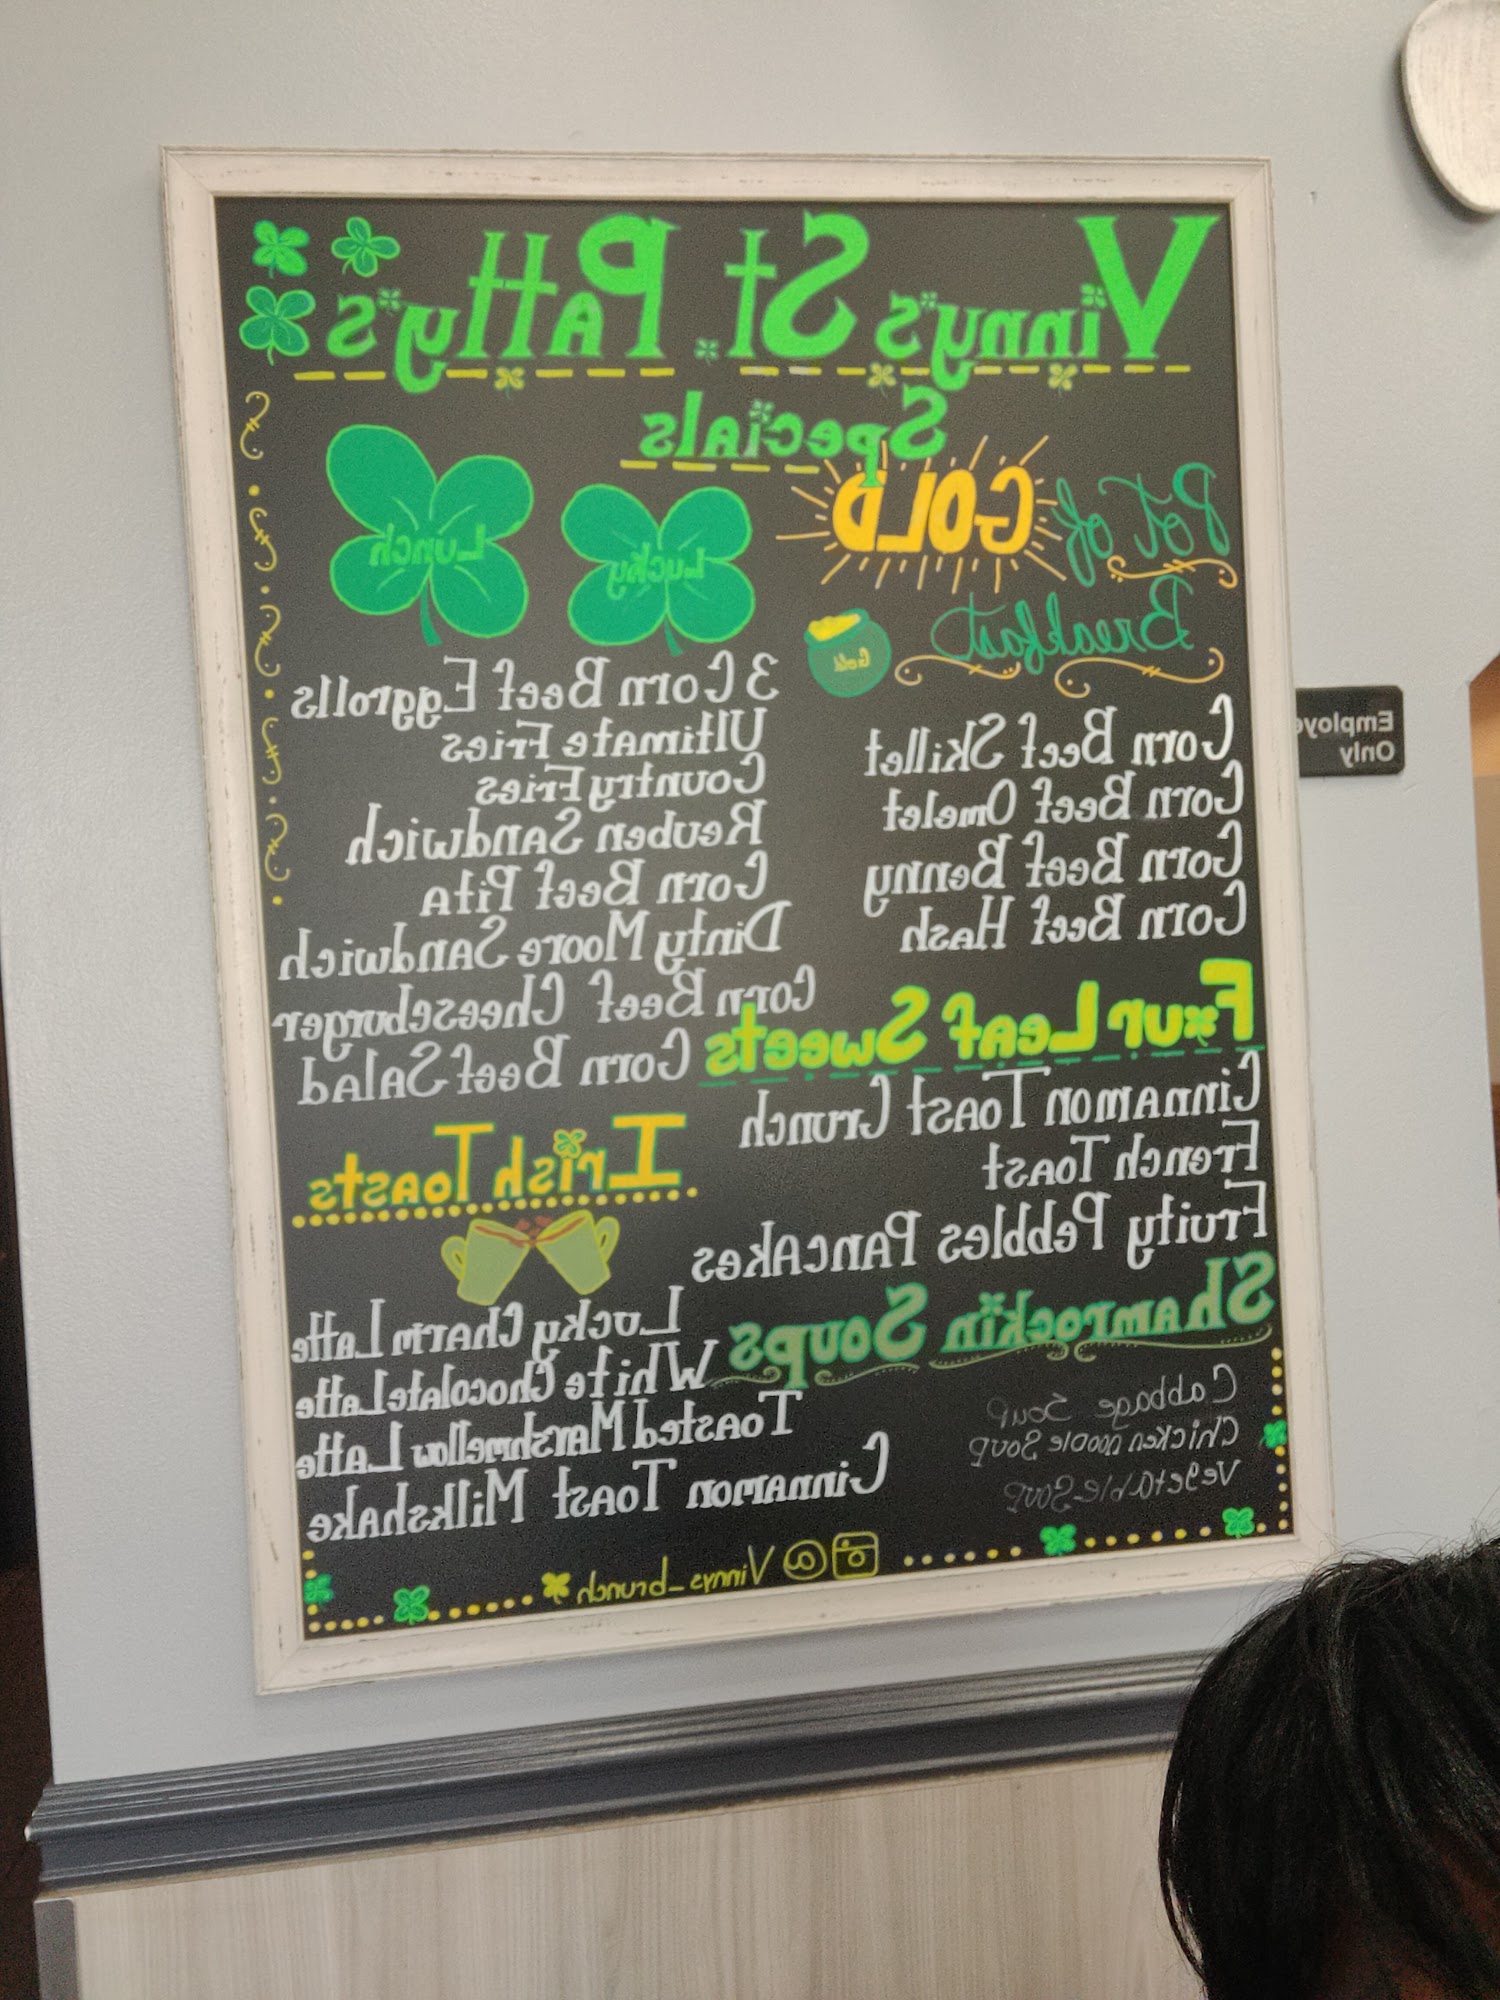 Vinny's St. Patty's
Specials
Pot of GOLD
Breakfast
Gold
Corn Beef Skillet
Corn Beef Omelet
Corn Beef Benny
Corn Beef Hash
Four Leaf Sweets
Cinnamon Toast Crunch
French Toast
Fruity Pebbles Pancakes
Shamrockin Soups
Cabbage Soup
Chicken noodle Soup
Vegetable Soup
Lucky Lunch
3 Corn Beef Eggrolls
Ultimate Fries
Country Fries
Reuben Sandwich
Corn Beef Pita
Dinty Moore Sandwich
Corn Beef Cheeseburger
Corn Beef Salad
Irish Toasts
Lucky Charm Latte
White Chocolate Latte
Toasted Marshmellow Latte
Cinnamon Toast Milkshake
@ Vinnys_brunch
Employe
Only